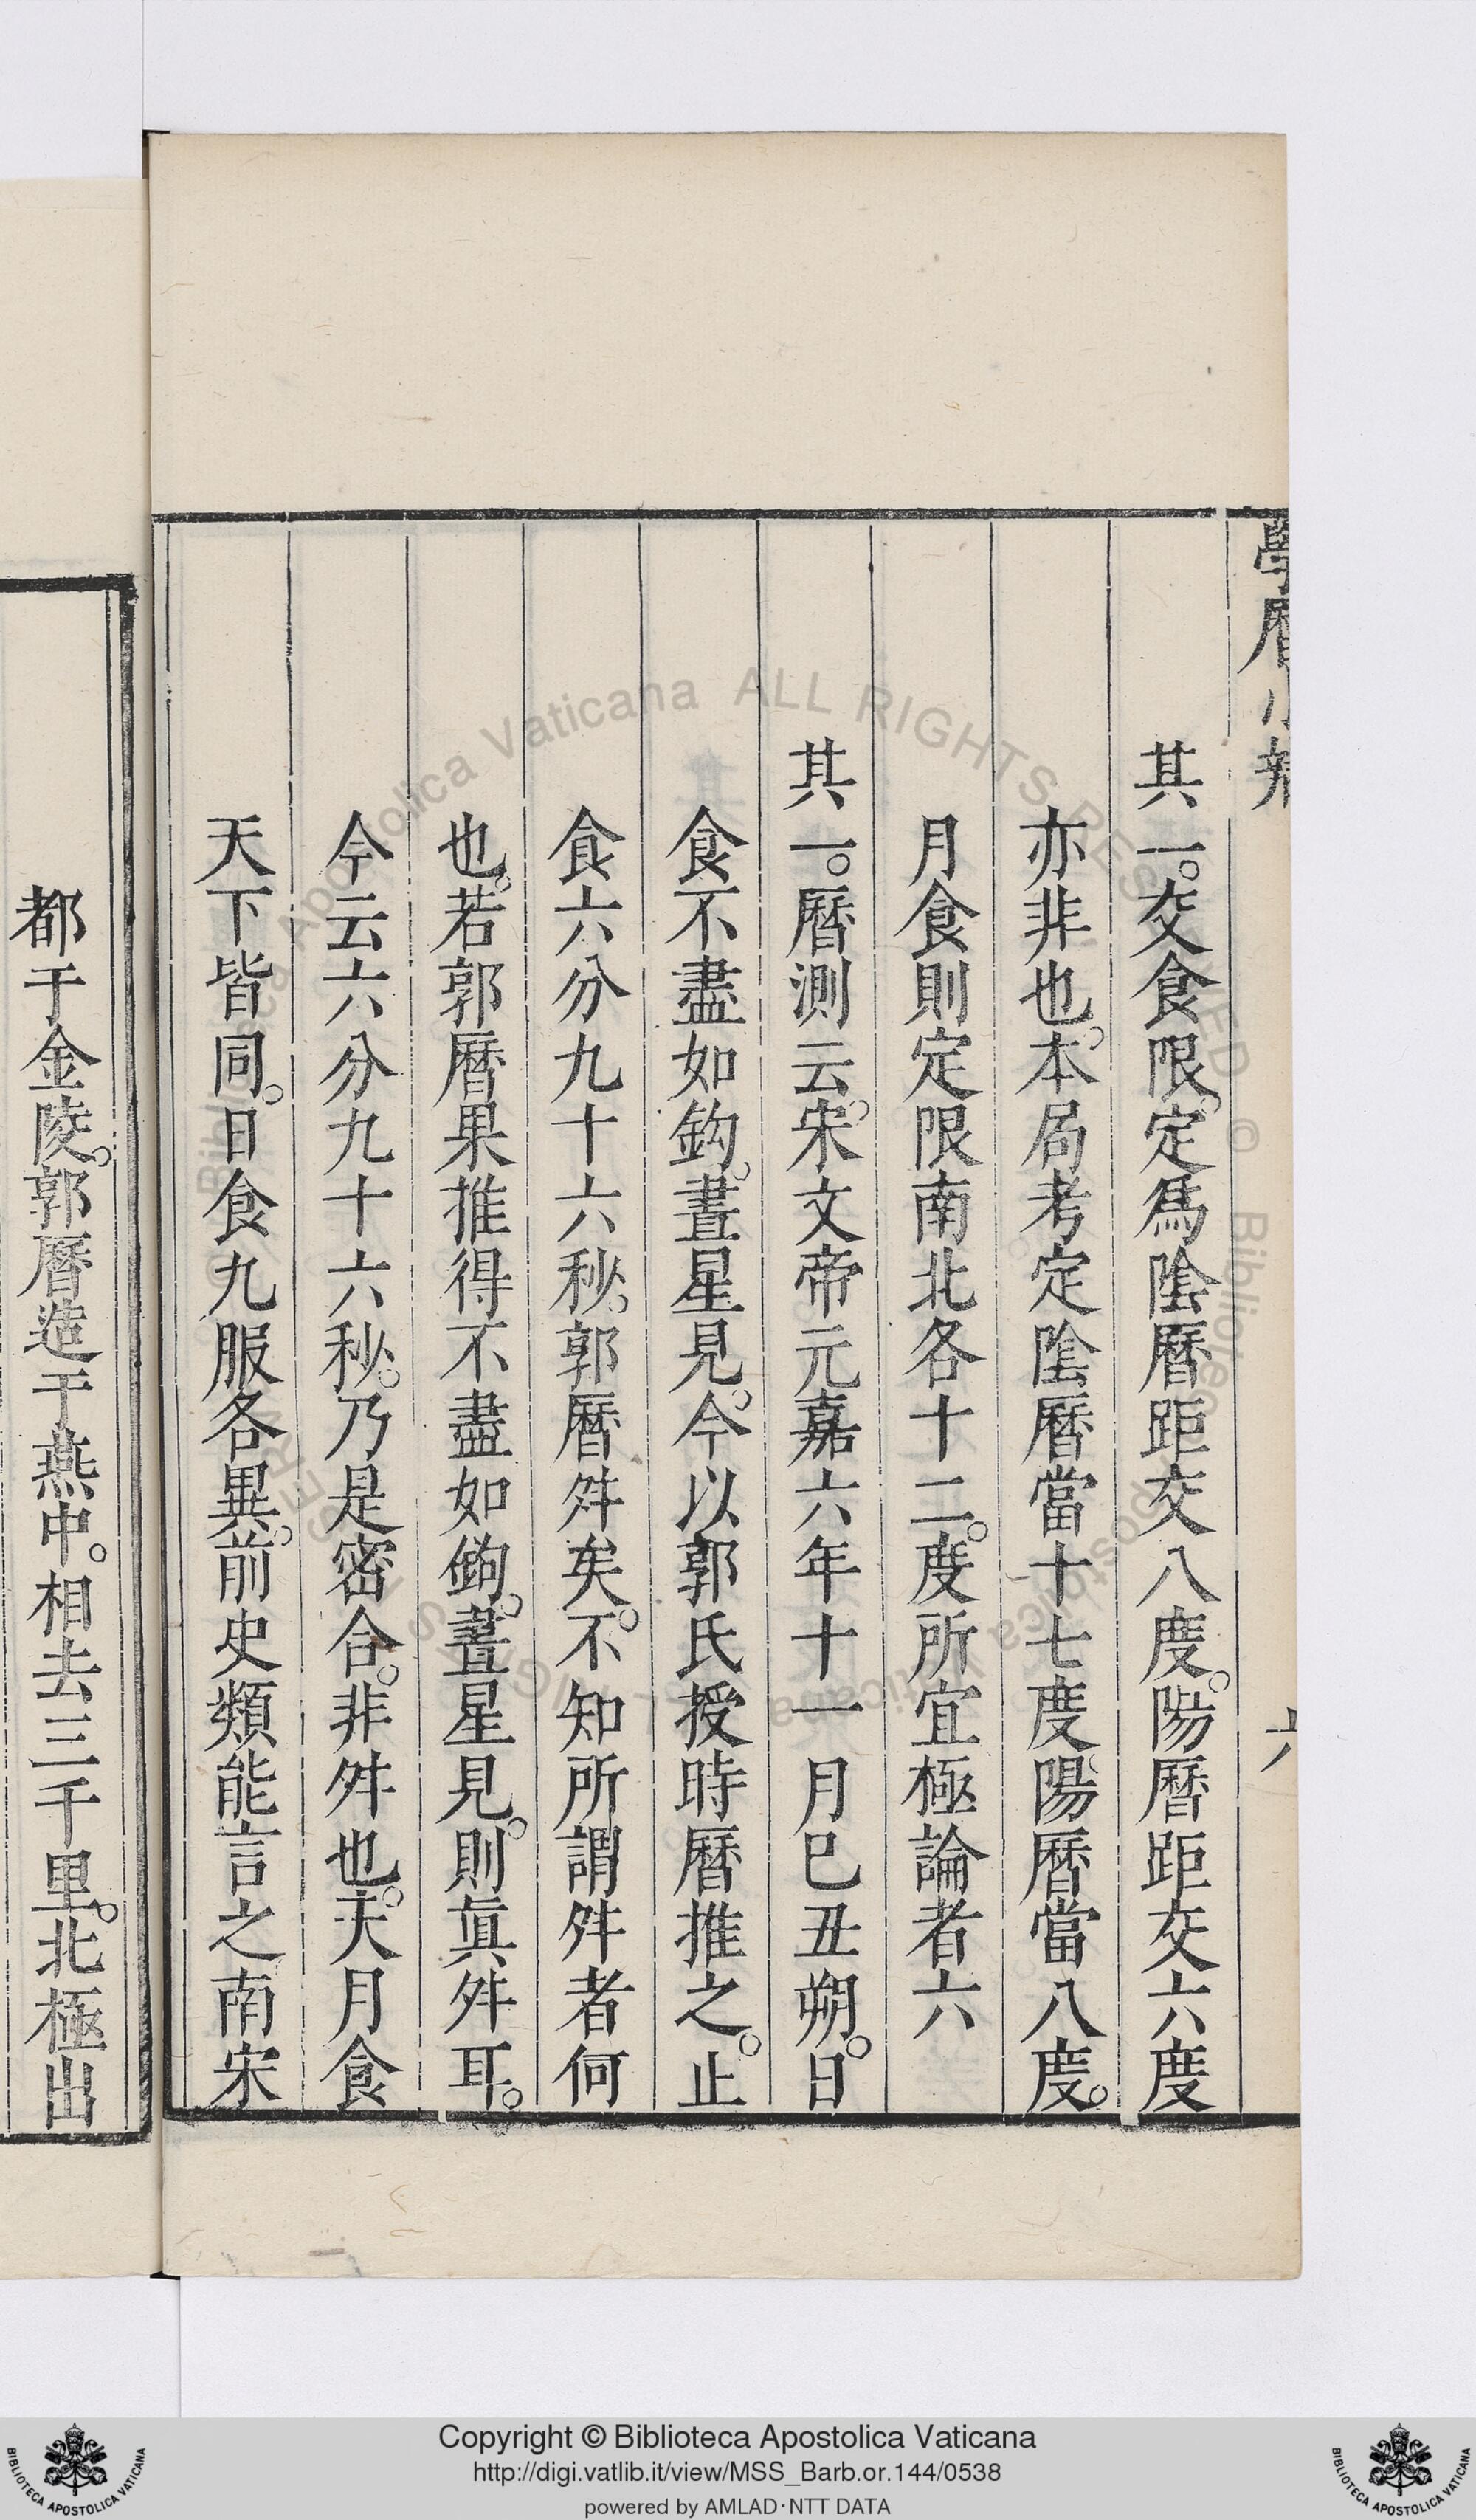 學曆小辨
六
其一。交食限。定爲陰曆距交八度。陽曆距交六度
亦非也。本局考定陰曆當十七度陽曆當八度。
月食則定限南北各十二。度所宜極論者六
其一。曆測云。宋文帝元嘉六年十一月巳丑朔。日
食不盡如鈎。晝星見。今以郭氏授時曆推之。止
食六分九十六秒。郭曆舛矣。不知所謂舛者何
也。若郭曆果推得不盡如鉤。晝星見。則眞舛耳。
今云六分九十六秒。乃是密合。非舛也。夫月食
天下皆同。日食九服各異。前史類能言之南宋
都于金陵。郭曆造于燕中。相去三千里。北極出
Copyright © Biblioteca Apostolica Vaticana
http://digi.vatlib.it/view/MSS_Barb.or.144/0538
powered by AMLAD·NTT DATA
BIBLIOTECA APOSTOLICA VATICANA
BIBLIOTECA APOSTOLICA VATICANA